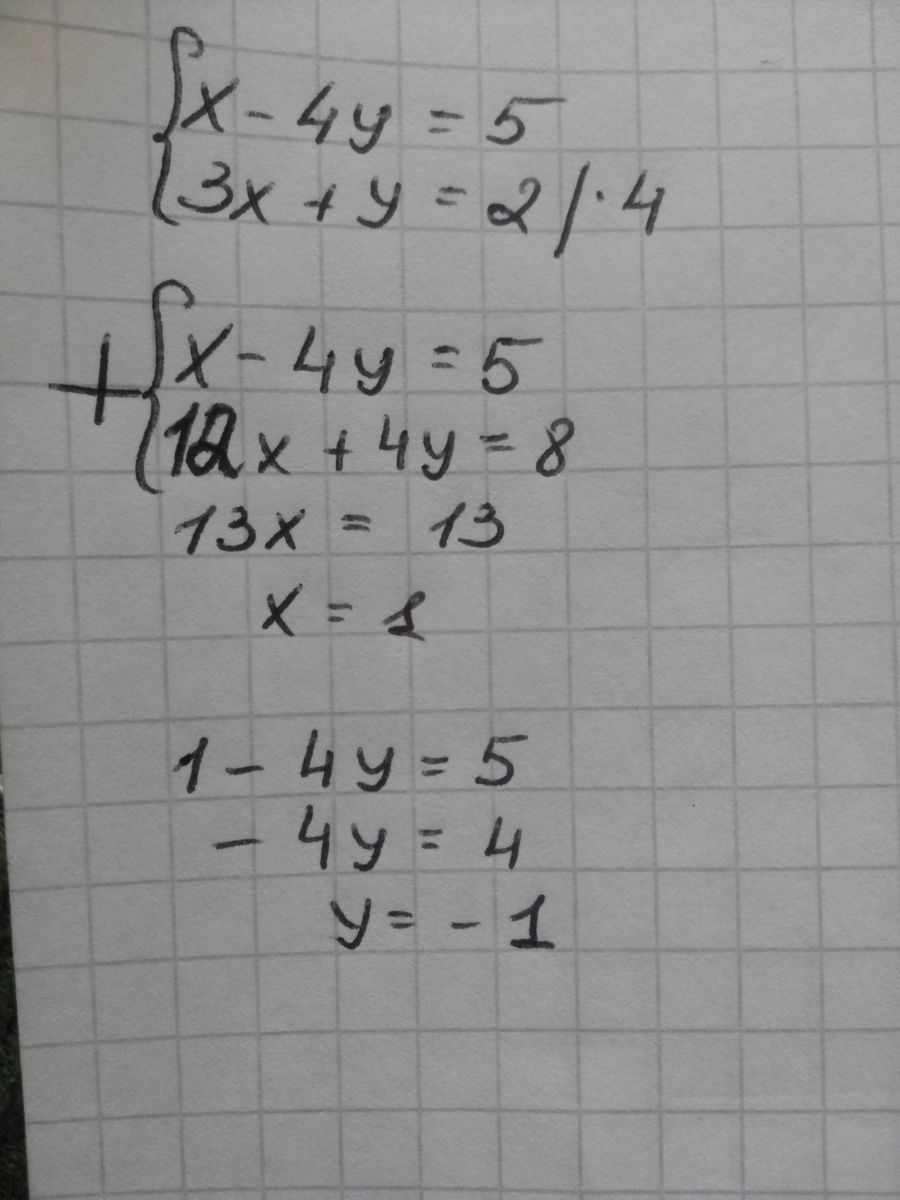 {x - 4y = 5
{3x + y = 2 /· 4
+{x - 4y = 5
{12x + 4y = 8
13x = 13
x = 1
1 - 4y = 5
- 4y = 4
y = - 1